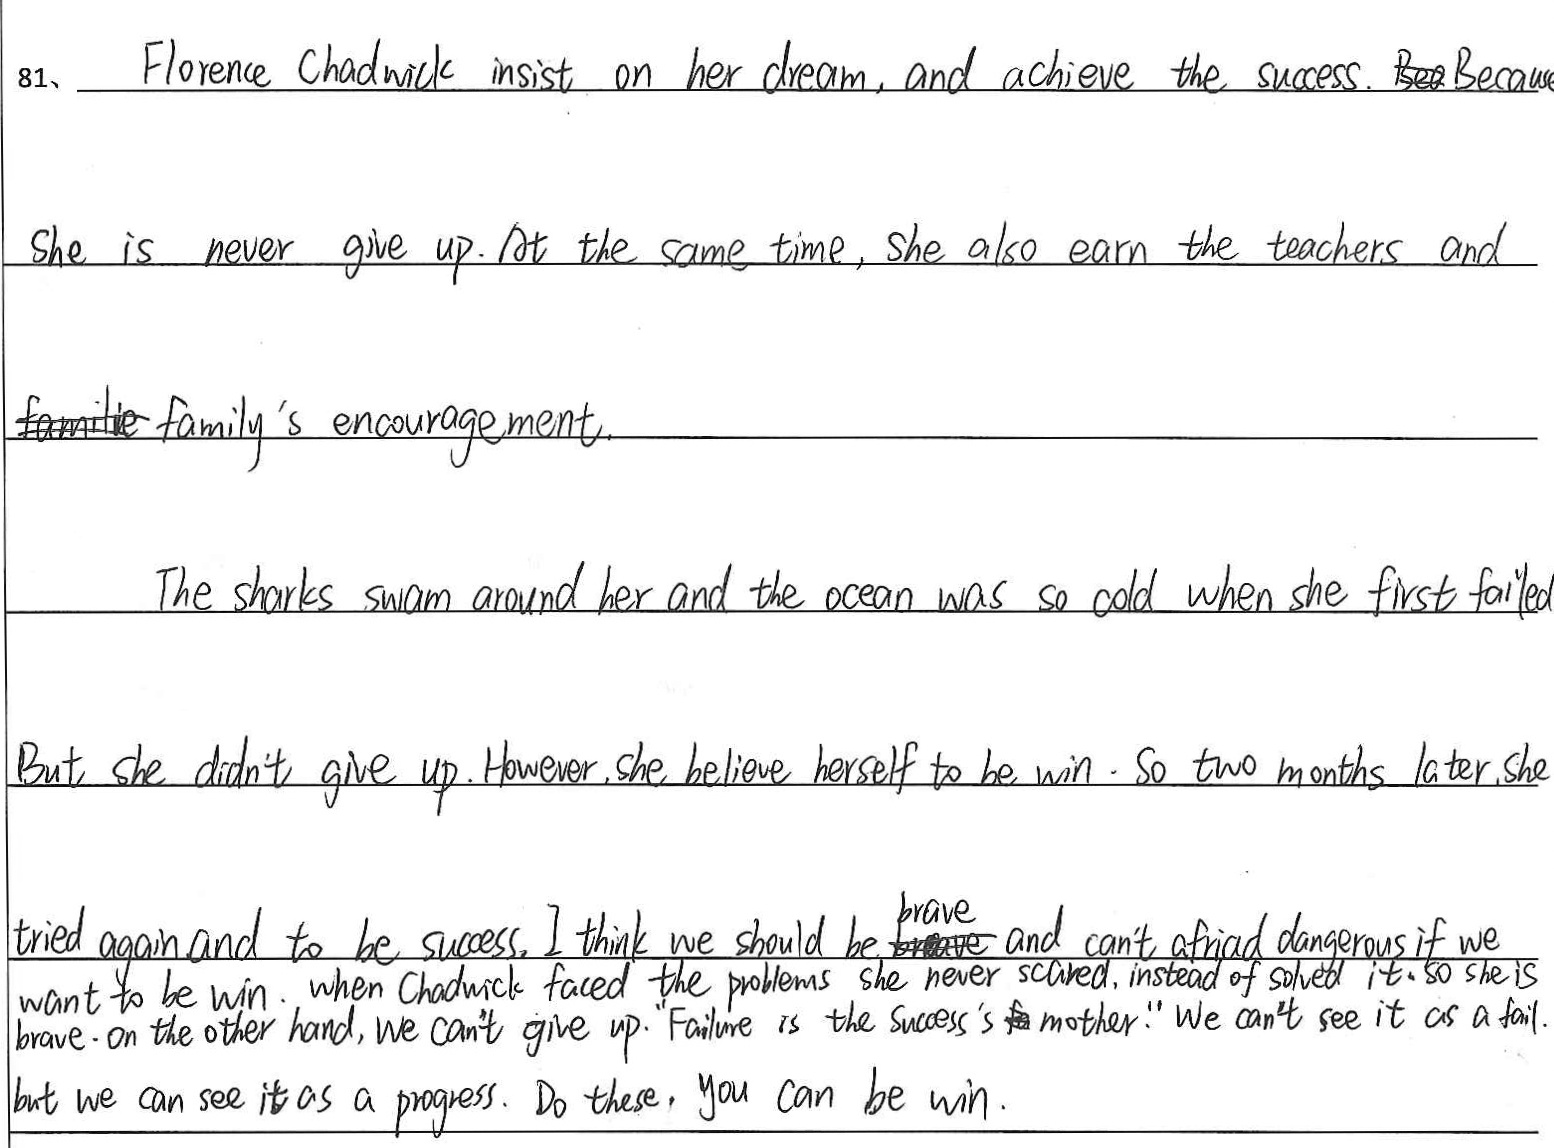 81、 Florence Chadwick insist on her dream, and achieve the success. Because
She is never give up. At the same time, She also earn the teachers and
family's encouragement.
The sharks swam around her and the ocean was so cold when she first failed
But she didn't give up. However, she believe herself to be win. So two months later, she
tried again and to be success. I think we should be brave and can't afriad dangerous if we
want to be win. when Chadwick faced the problems she never scared, instead of solved it. so she is
brave. on the other hand, we can't give up. "Failure is the success's mother." We can't see it as a fail.
but we can see it as a progress. Do these, you can be win.